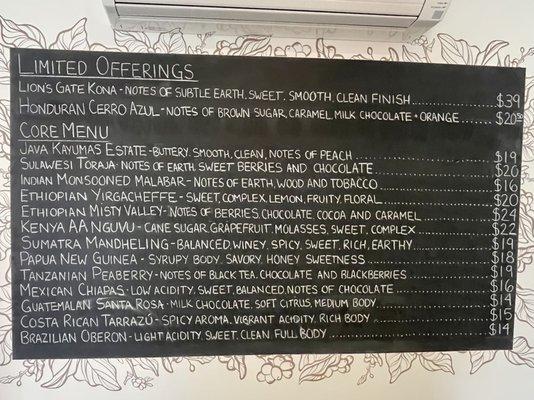 LIMITED OFFERINGS
LION'S GATE KONA - NOTES OF SUBTLE EARTH, SWEET, SMOOTH, CLEAN FINISH $39
HONDURAN CERRO AZUL - NOTES OF BROWN SUGAR, CARAMEL, MILK CHOCOLATE + ORANGE $20.50
CORE MENU
JAVA KAYUMAS ESTATE - BUTTERY, SMOOTH, CLEAN, NOTES OF PEACH $19
SULAWESI TORAJA - NOTES OF EARTH, SWEET BERRIES AND CHOCOLATE $20
INDIAN MONSOONED MALABAR - NOTES OF EARTH, WOOD AND TOBACCO $16
ETHIOPIAN YIRGACHEFFE - SWEET, COMPLEX, LEMON, FRUITY, FLORAL $20
ETHIOPIAN MISTY VALLEY - NOTES OF BERRIES, CHOCOLATE, COCOA AND CARAMEL $24
KENYA AA NGUVU - CANE SUGAR, GRAPEFRUIT, MOLASSES, SWEET, COMPLEX $22
SUMATRA MANDHELING - BALANCED, WINEY, SPICY, SWEET, RICH, EARTHY $19
PAPUA NEW GUINEA - SYRUPY BODY, SAVORY, HONEY SWEETNESS $18
TANZANIAN PEABERRY - NOTES OF BLACK TEA, CHOCOLATE AND BLACKBERRIES $19
MEXICAN CHIAPAS - LOW ACIDITY, SWEET, BALANCED, NOTES OF CHOCOLATE $16
GUATEMALAN SANTA ROSA - MILK CHOCOLATE, SOFT CITRUS, MEDIUM BODY $14
COSTA RICAN TARRAZÚ - SPICY AROMA, VIBRANT ACIDITY, RICH BODY $15
BRAZILIAN OBERON - LIGHT ACIDITY, SWEET, CLEAN, FULL BODY $14